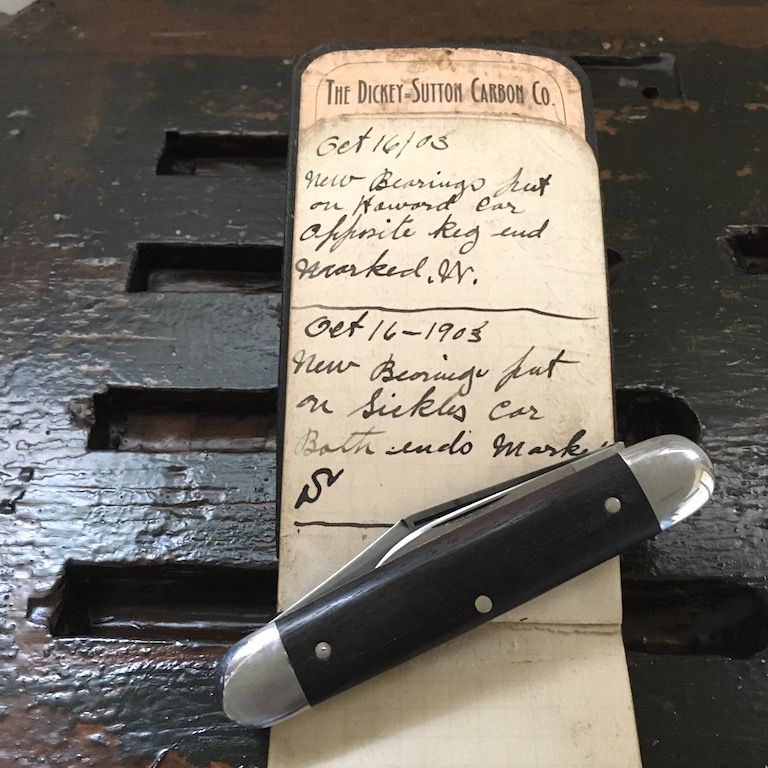 THE DICKEY=SUTTON CARBON CO.
Oct 16/03
New Bearings put
on Howard car
opposite keg end
Marked. W.
Oct 16-1903
New Bearings put
on Sickles Car
Both ends Marke
S